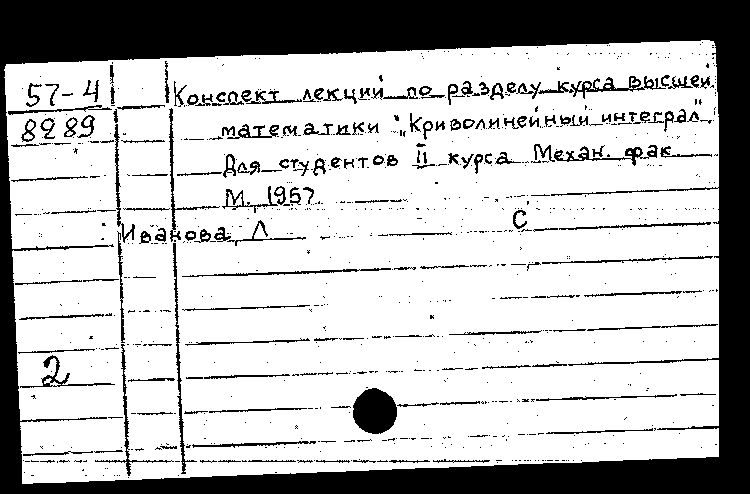 57-4 Конспект лекций по разделу курса высшей
8289 математики "Криволинейный интеграл".
Для студентов II курса Механ. фак.
М., 1957
Иванова, Л С
2